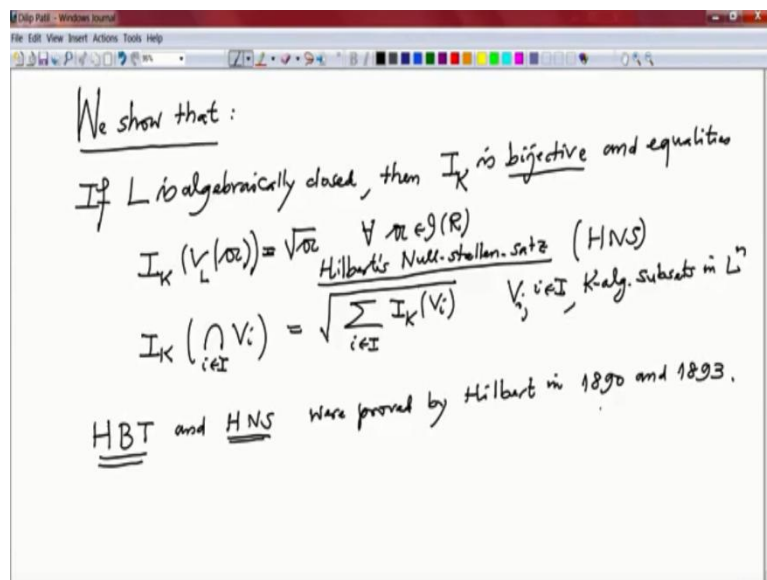 Dilip Patil - Windows Journal
File Edit View Insert Actions Tools Help
We show that :
If L is algebraically closed, then I_K is bijective and equalities
I_K (V_L(𝔞)) = √𝔞 ∀ 𝔞 ∈ 𝒥(R)
Hilbert's Null-stellen-satz (HNS)
I_K (⋂_{i∈I} V_i) = √(∑_{i∈I} I_K(V_i)) V_i, i∈I, K-alg. subsets in L^n
HBT and HNS were proved by Hilbert in 1890 and 1893.